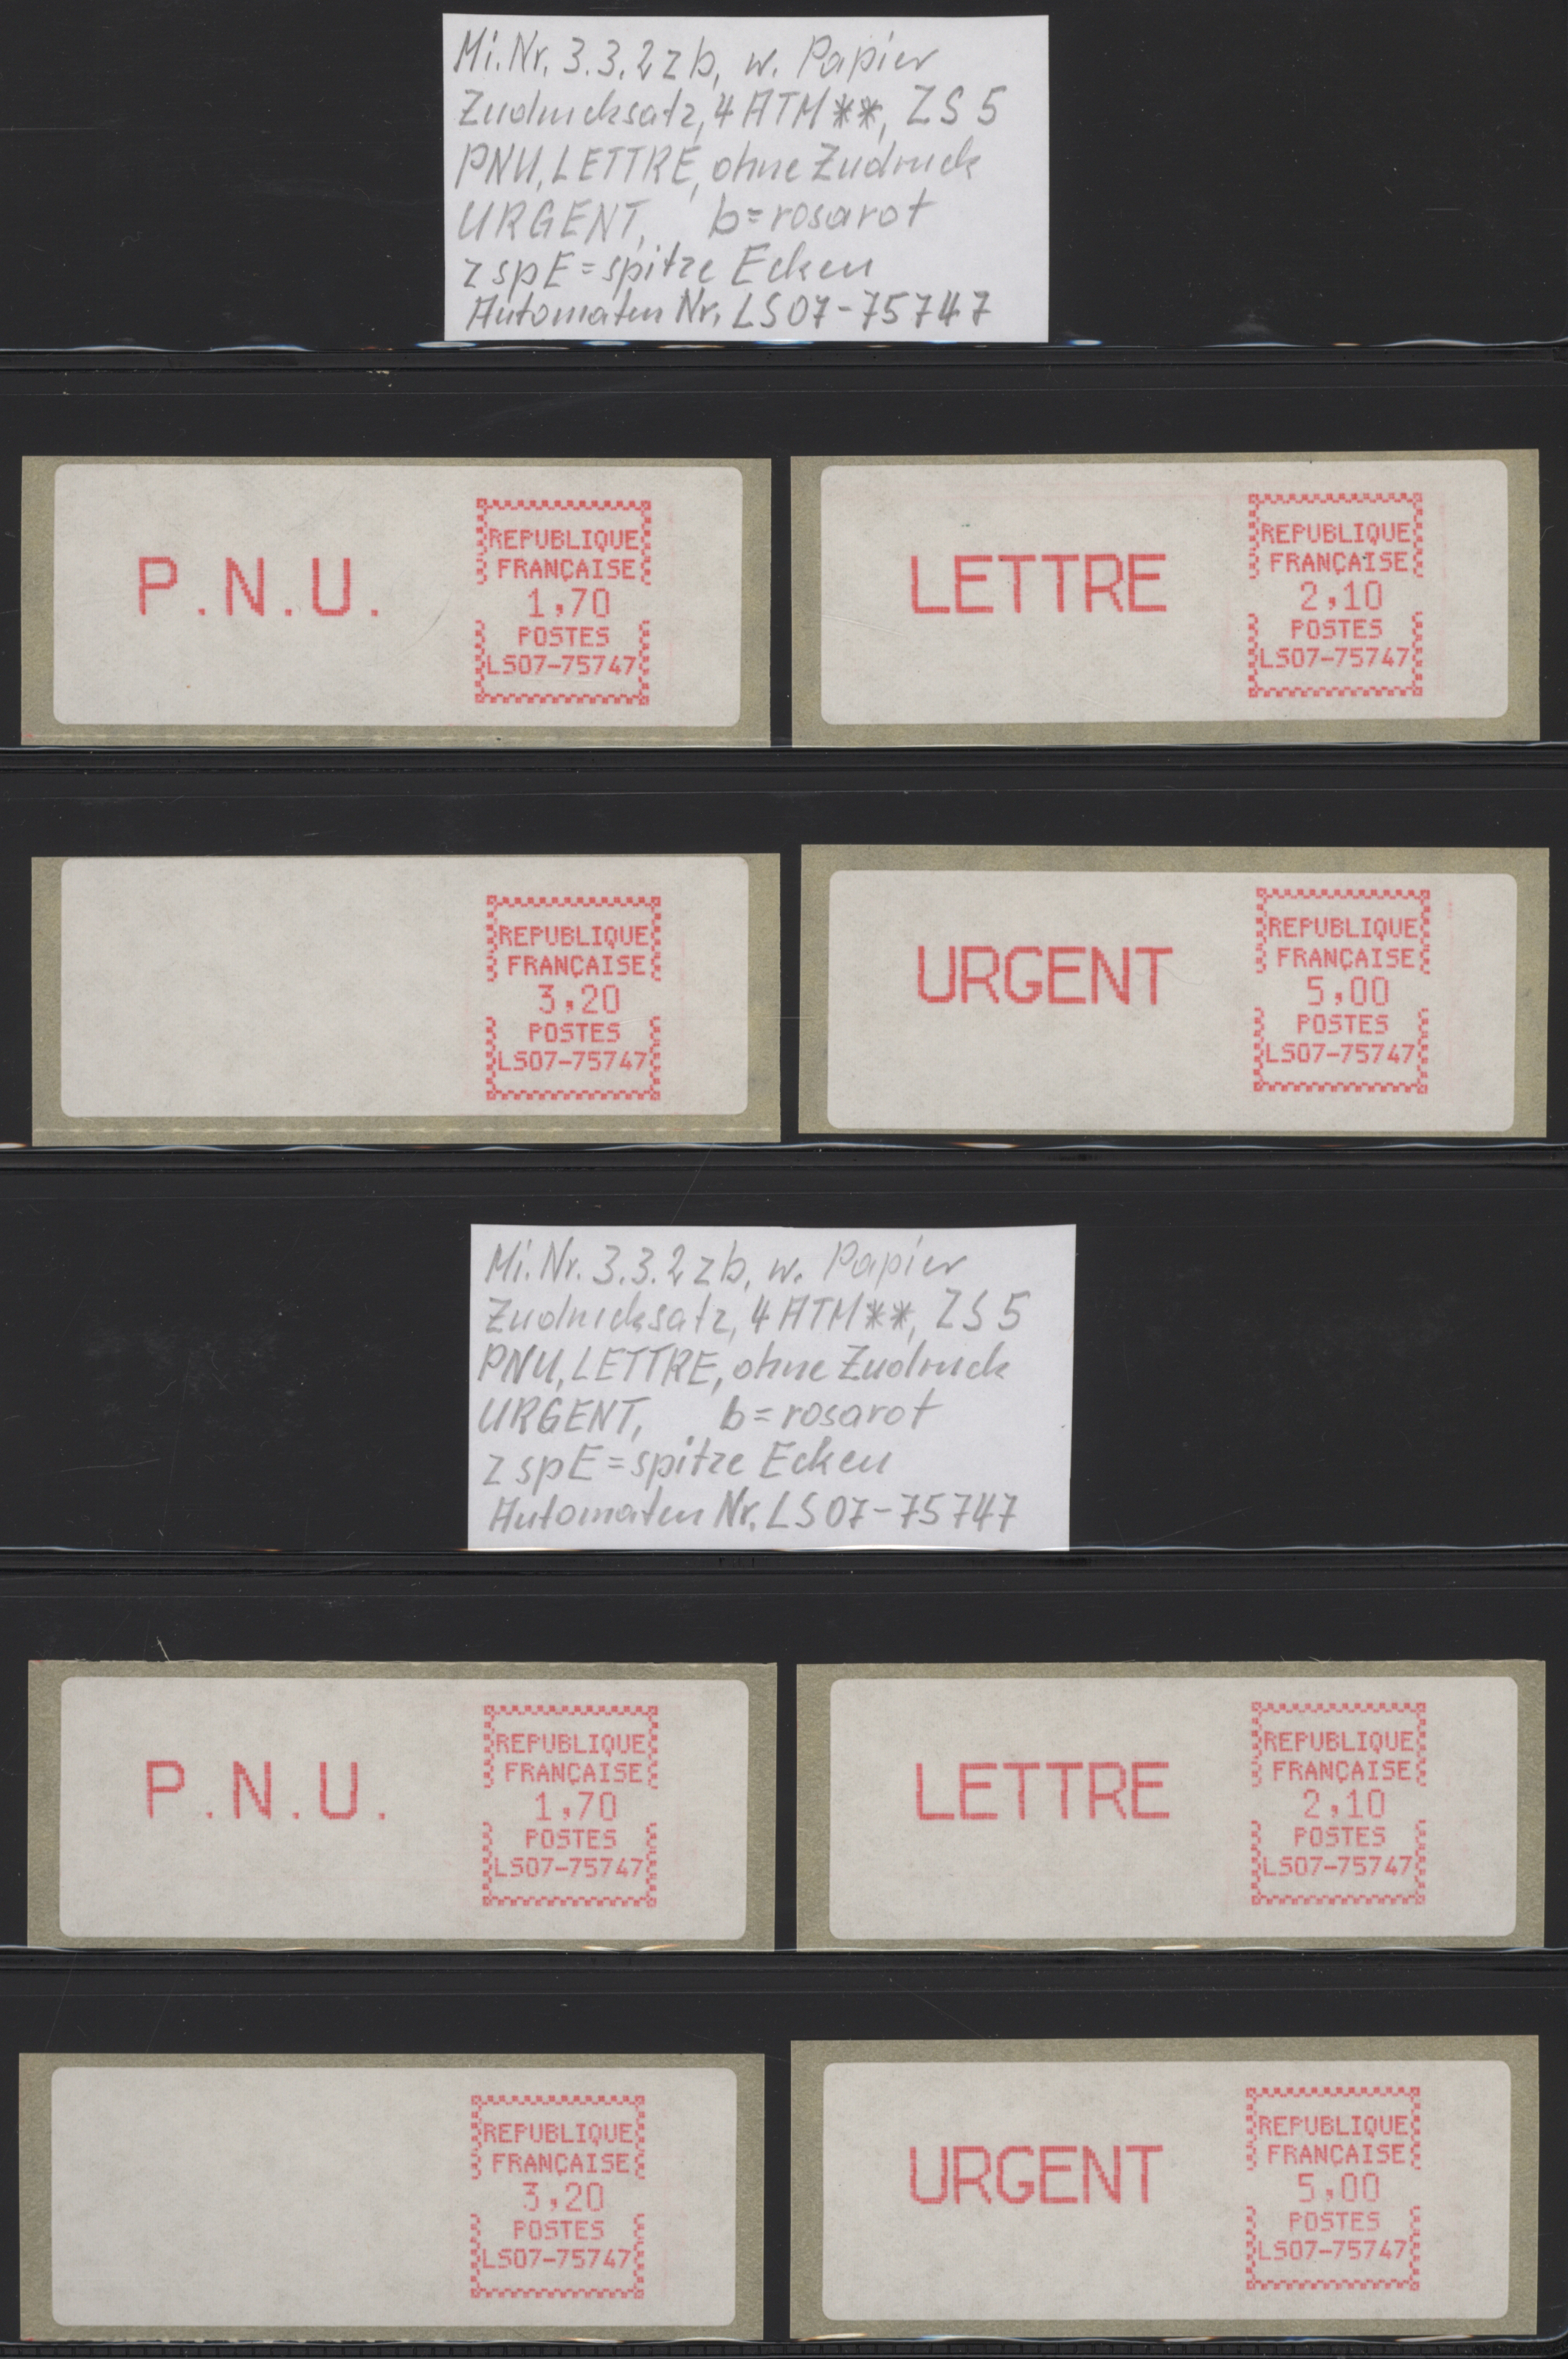 Mi.Nr. 3.3.2 z b, w. Papier
Zudrucksatz, 4 ATM **, ZS 5
PNU, LETTRE, ohne Zudruck
URGENT, b=rosarot
z spE = spitze Ecken
Automaten Nr. LS07-75747
P.N.U.
REPUBLIQUE
FRANÇAISE
1,70
POSTES
LS07-75747
LETTRE
REPUBLIQUE
FRANÇAISE
2,10
POSTES
LS07-75747
REPUBLIQUE
FRANÇAISE
3,20
POSTES
LS07-75747
URGENT
REPUBLIQUE
FRANÇAISE
5,00
POSTES
LS07-75747
Mi.Nr. 3.3.2 z b, w. Papier
Zudrucksatz, 4 ATM **, ZS 5
PNU, LETTRE, ohne Zudruck
URGENT, b=rosarot
z spE = spitze Ecken
Automaten Nr. LS07-75747
P.N.U.
REPUBLIQUE
FRANÇAISE
1,70
POSTES
LS07-75747
LETTRE
REPUBLIQUE
FRANÇAISE
2,10
POSTES
LS07-75747
REPUBLIQUE
FRANÇAISE
3,20
POSTES
LS07-75747
URGENT
REPUBLIQUE
FRANÇAISE
5,00
POSTES
LS07-75747